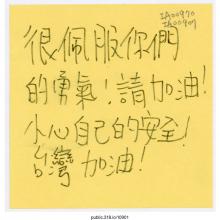 IA00970
IA00907
很佩服你們
的勇氣!請加油!
小心自己的安全!
台灣加油!
public.318.io/0901